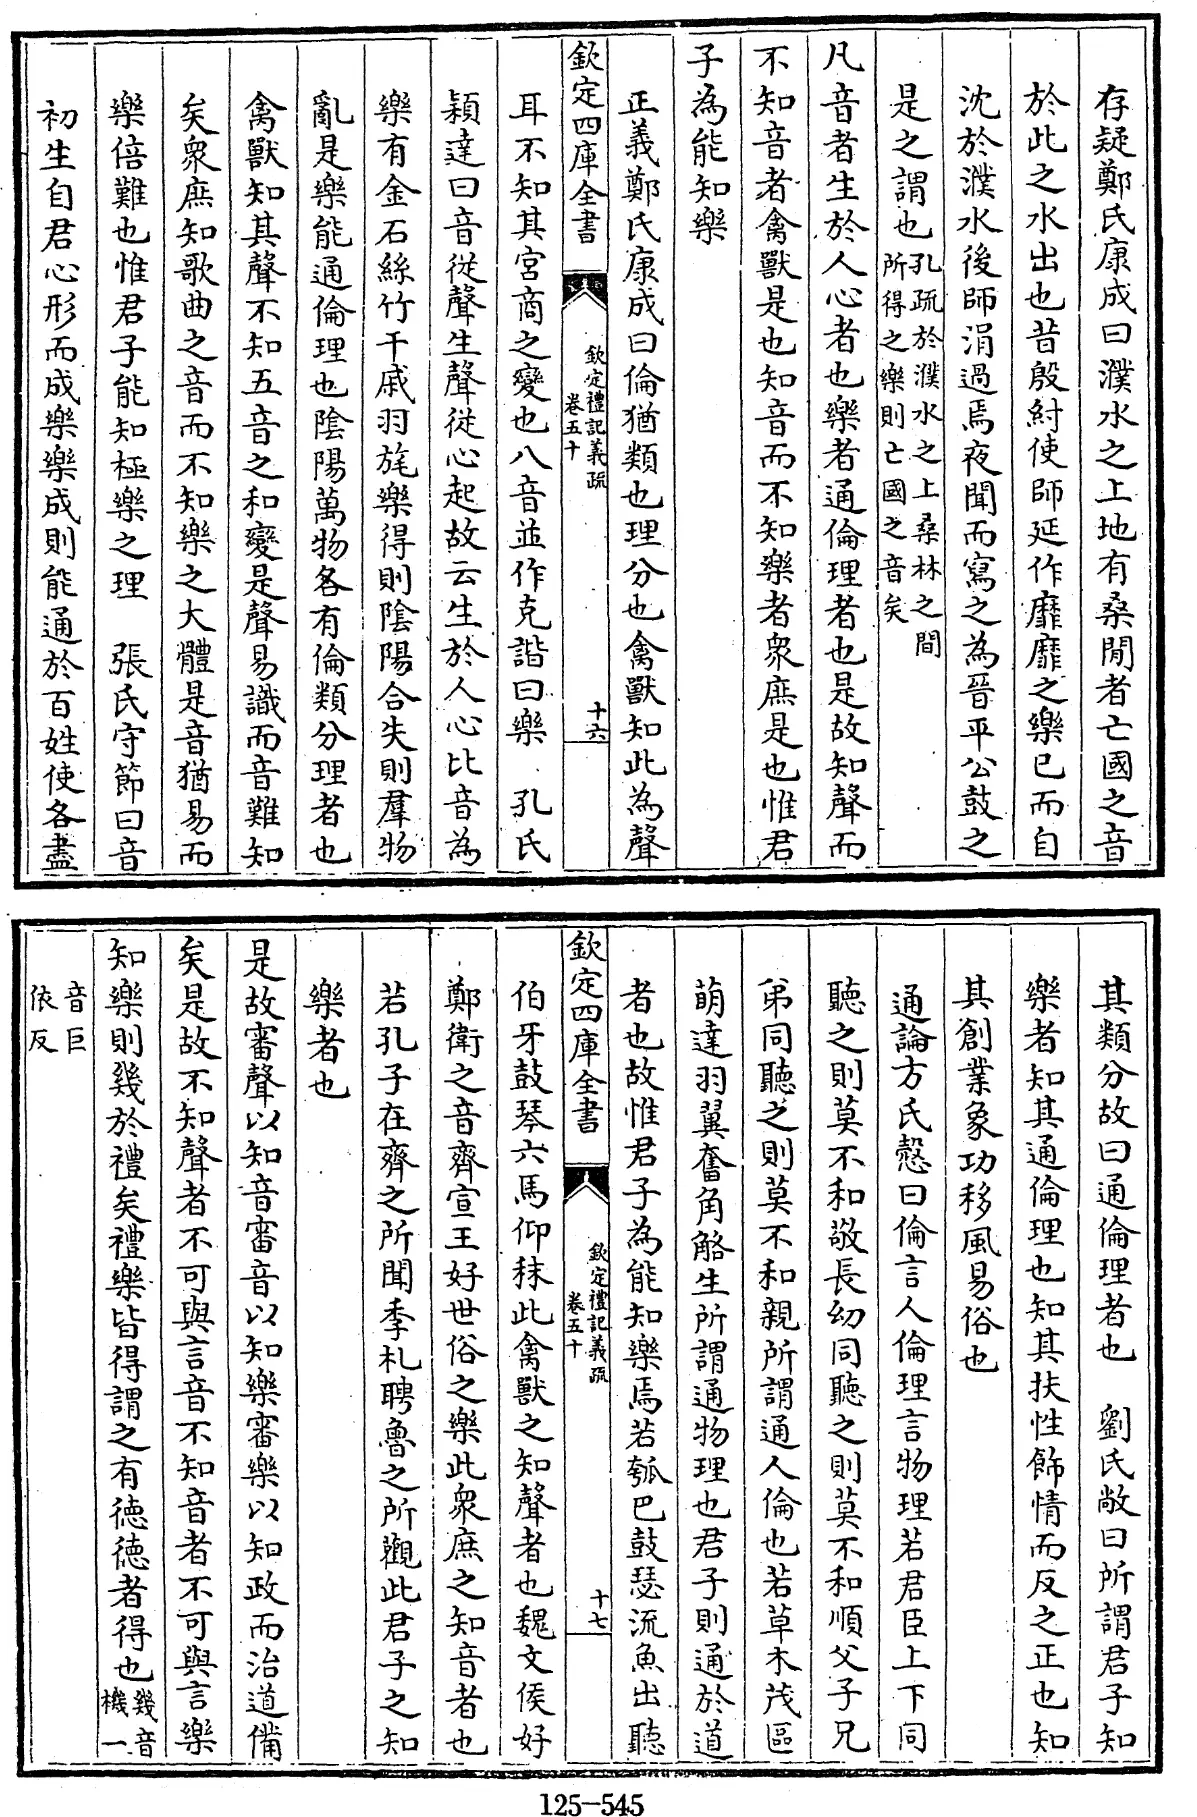 存疑鄭氏康成曰濮水之上地有桑閒者亡國之音
於此之水出也昔殷紂使師延作靡靡之樂已而自
沈於濮水後師涓過焉夜聞而寫之為晉平公鼓之
是之謂也孔疏於濮水之上桑林之間
所得之樂則亡國之音矣
凡音者生於人心者也樂者通倫理者也是故知聲而
不知音者禽獸是也知音而不知樂者衆庶是也惟君
子為能知樂
正義鄭氏康成曰倫猶類也理分也禽獸知此為聲
欽定四庫全書
欽定禮記義疏
卷五十
十六
耳不知其宮商之變也八音並作克諧曰樂 孔氏
穎達曰音從聲生聲從心起故云生於人心比音為
樂有金石絲竹干戚羽旄樂得則陰陽合失則羣物
亂是樂能通倫理也陰陽萬物各有倫類分理者也
禽獸知其聲不知五音之和變是聲易識而音難知
矣衆庶知歌曲之音而不知樂之大體是音猶易而
樂倍難也惟君子能知極樂之理 張氏守節曰音
初生自君心形而成樂樂成則能通於百姓使各盡
其類分故曰通倫理者也 劉氏敞曰所謂君子知
樂者知其通倫理也知其扶性飾情而反之正也知
其創業象功移風易俗也
通論方氏慤曰倫言人倫理言物理若君臣上下同
聽之則莫不和敬長幼同聽之則莫不和順父子兄
弟同聽之則莫不和親所謂通人倫也若草木茂區
萌達羽翼奮角觡生所謂通物理也君子則通於道
者也故惟君子為能知樂焉若瓠巴鼓瑟流魚出聽
欽定四庫全書
欽定禮記義疏
卷五十
十七
伯牙鼓琴六馬仰秣此禽獸之知聲者也魏文侯好
鄭衛之音齊宣王好世俗之樂此衆庶之知音者也
若孔子在齊之所聞季札聘魯之所觀此君子之知
樂者也
是故審聲以知音審音以知樂審樂以知政而治道備
矣是故不知聲者不可與言音不知音者不可與言樂
知樂則幾於禮矣禮樂皆得謂之有德德者得也幾音
機一
音巨
依反
125-545